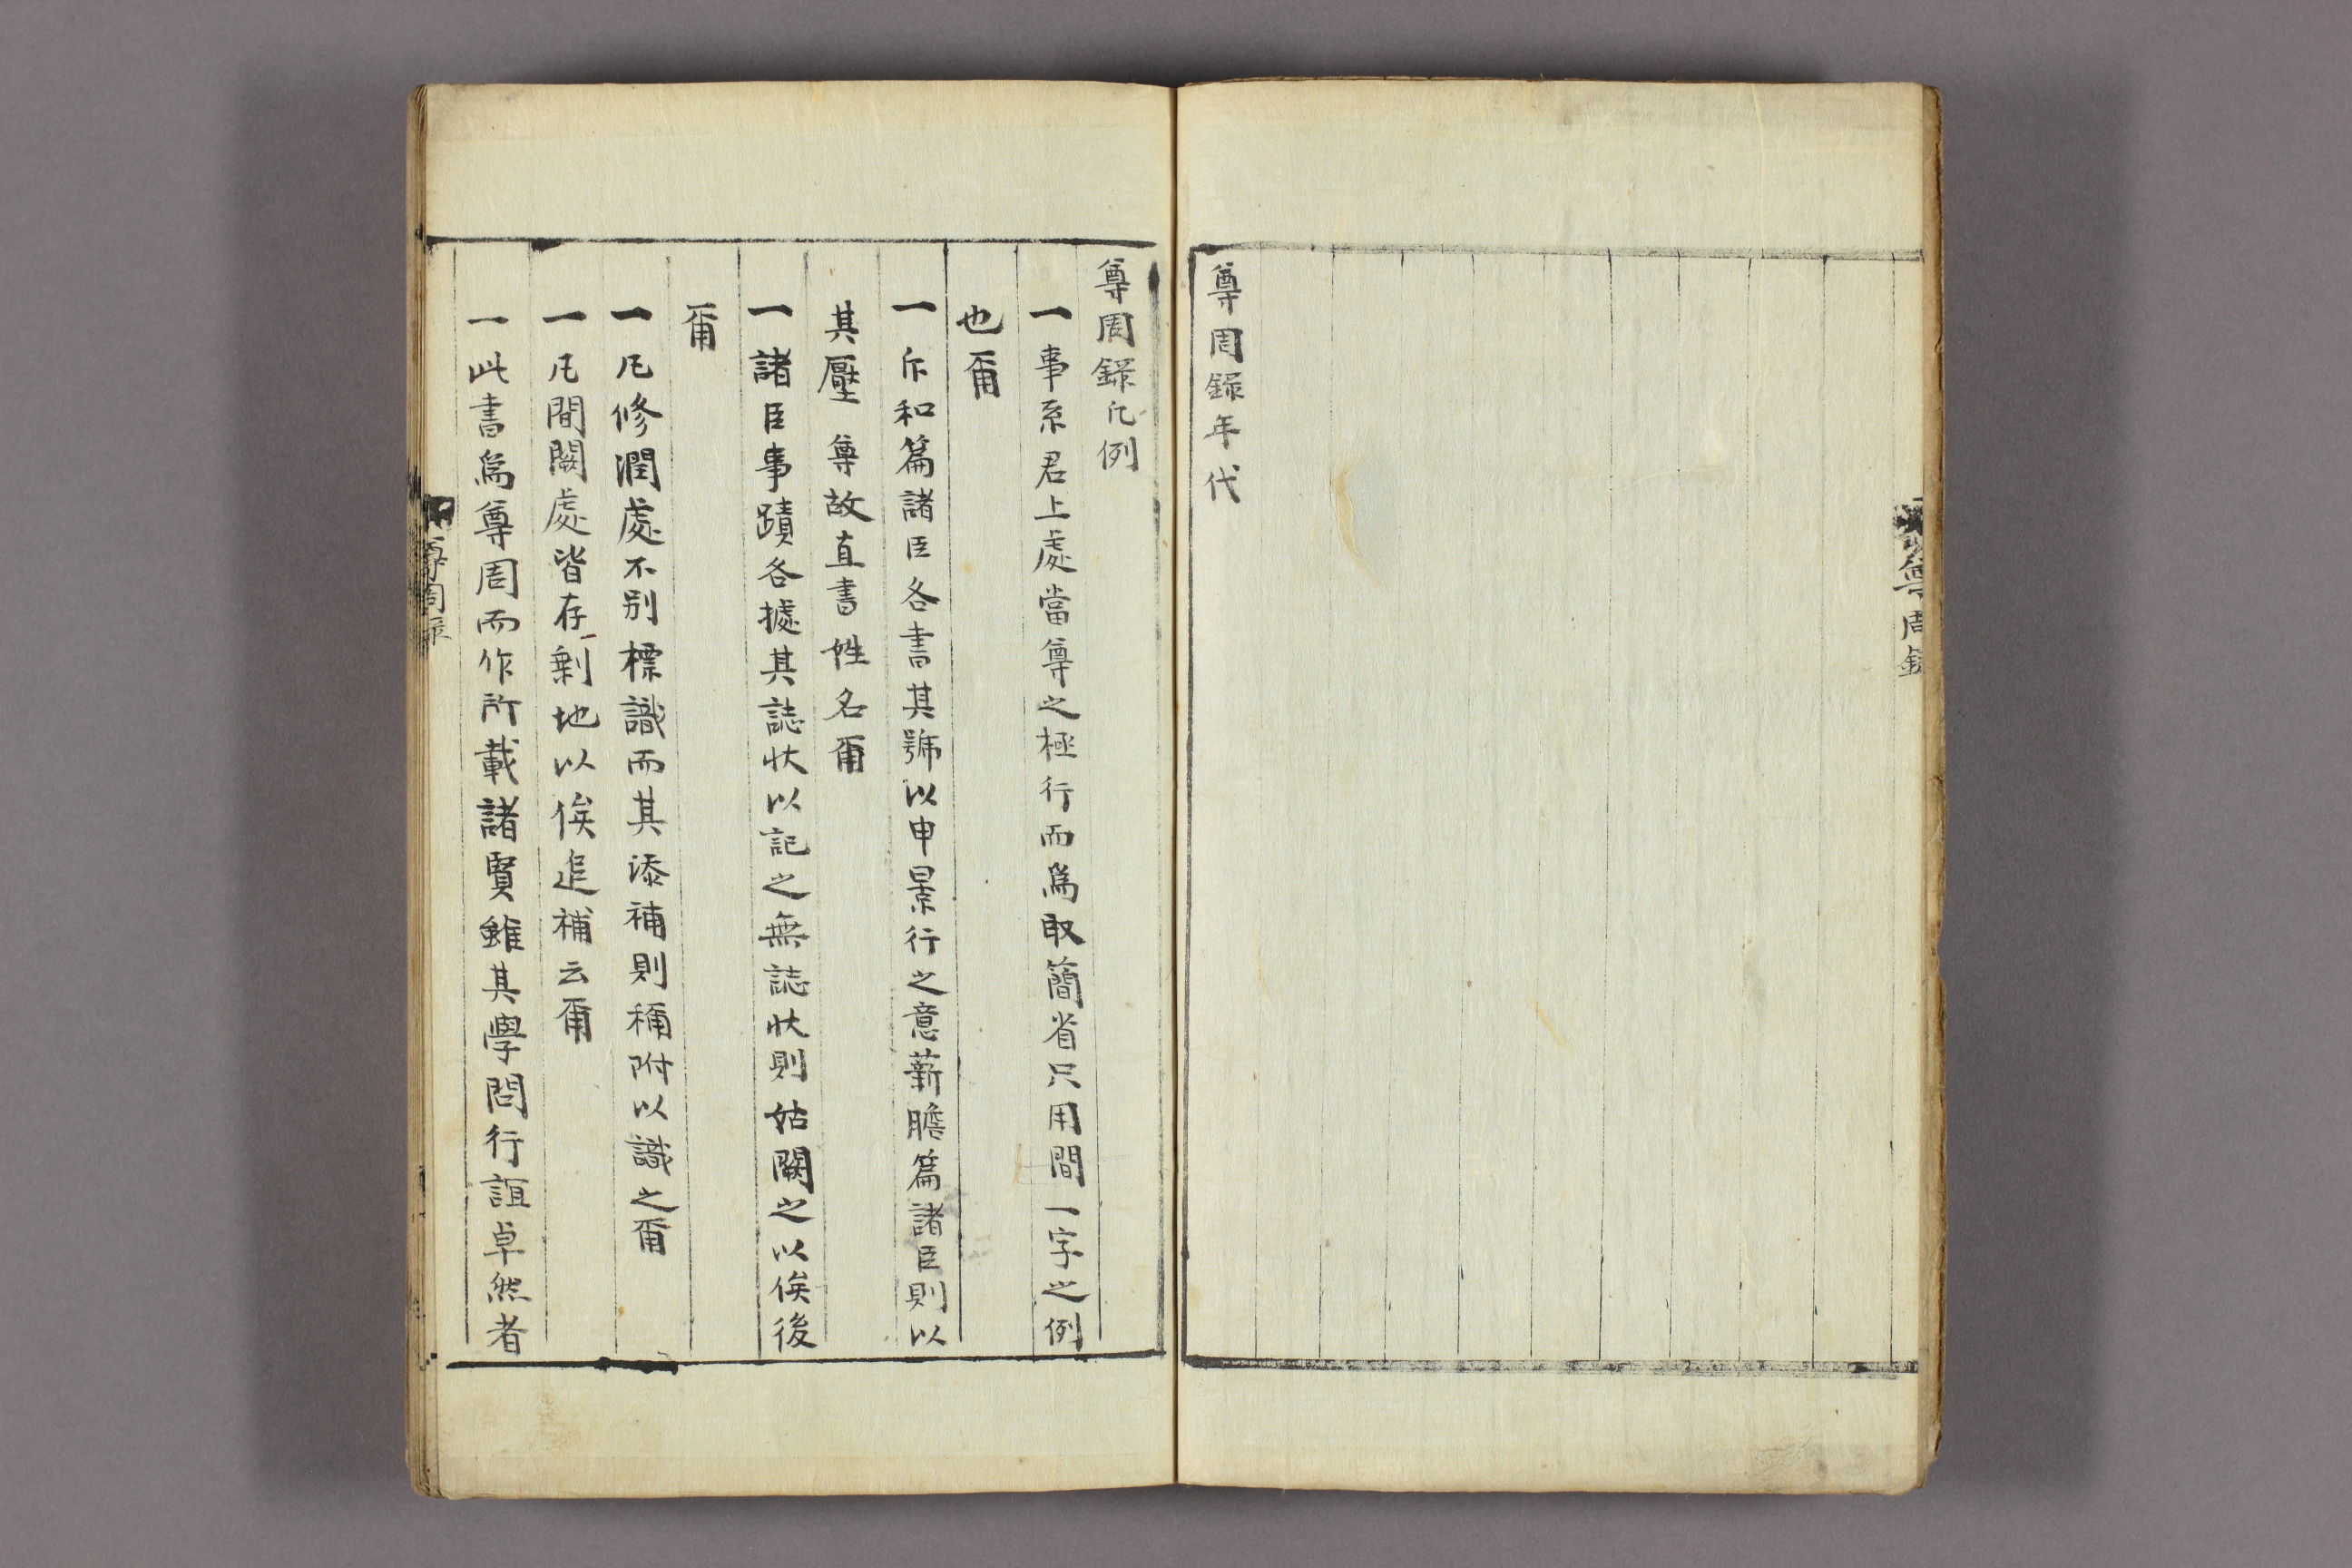 尊周錄
尊周錄年代
尊周錄凡例
一事系君上處當尊之極行而爲取簡省只用間一字之例
也爾
一斥和篇諸臣各書其號以申景行之意薪膽篇諸臣則以
其壓 尊故直書姓名爾
一諸臣事蹟各據其誌狀以記之無誌狀則姑闕之以俟後
爾
一凡修潤處不別標識而其添補則稱附以識之爾
一凡間闕處皆存剩地以俟追補云爾
一此書爲尊周而作所載諸賢雖其學問行誼卓然者
尊周錄